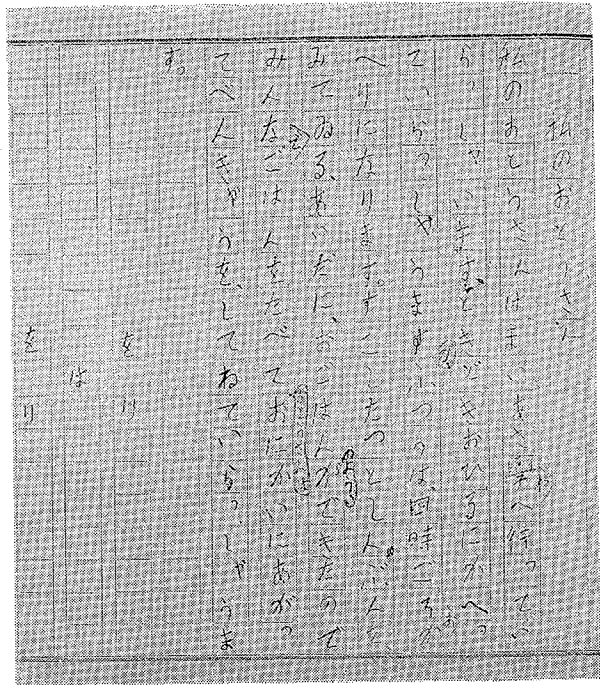 私のおとうさん
私のおとうさんは、まいあさ学校へ行ってい
らっしゃいます。ときどきおひるにかへっ
ていらっしゃうます。ふつうは、四時ごろか
へりになります。すこしたつとしんぶんを、
みてゐる、あいだに、おごはんができたので
みんなごはんをたべておにかいにあがっ
てべんきゃうを、してねていらっしゃうま
す。
をり
は
をり